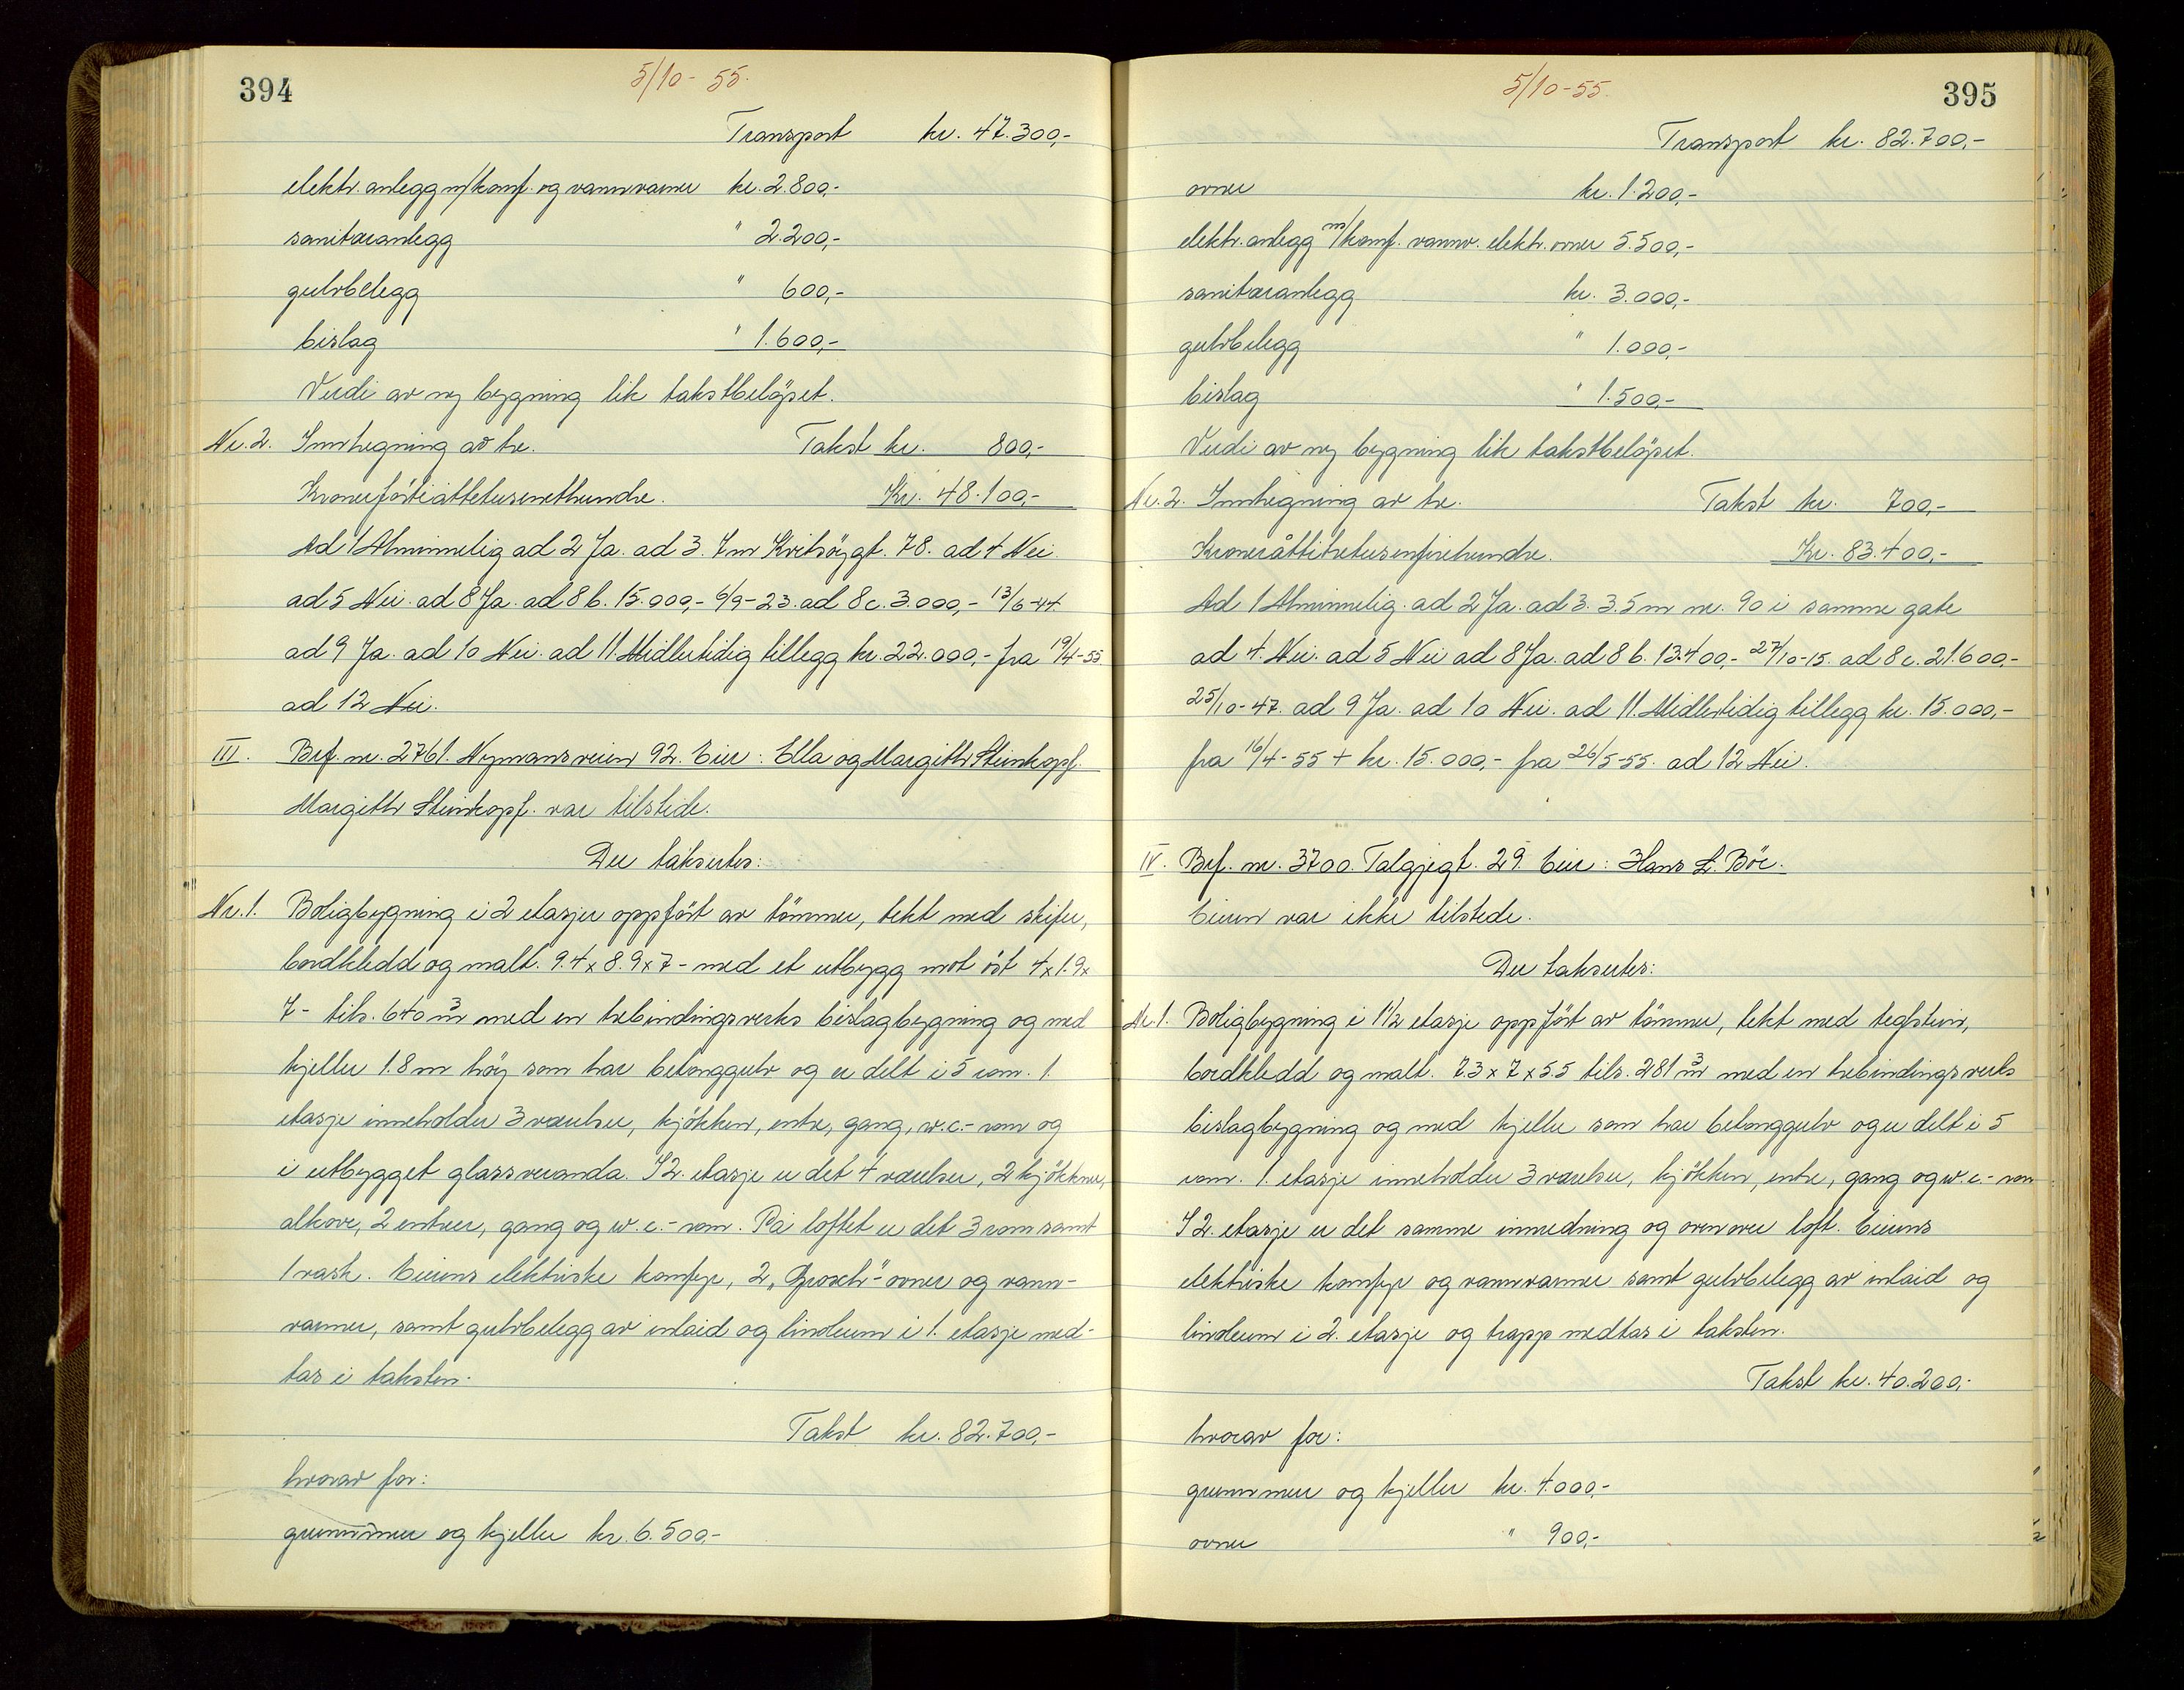 394
5/10 - 55.
Transport kr. 47.300,-
elektr. anlegg m/komf. og vannvarmer kr. 2.800,-
sanitæranlegg " 2.200,-
gulvbelegg " 600,-
bislag " 1.600,-
Verdi av ny bygning lik takstbelöpet.
Nr. 2. Innhegning av tre. Takst kr. 800,-
Kronerförtiåttetusenethundre. Kr. 48.100,-
Ad 1 Alminnelig ad 2 Ja. ad 3. 7 m Kvitsöygt. 78. ad 4 Nei.
ad 5 Nei. ad 8 Ja. ad 8 b. 15.000,- 6/9-23. ad 8c. 3.000,- 13/6-44
ad 9 Ja. ad 10 Nei. ad 11. Midlertidig tillegg kr. 22.000,- fra 19/4-55
ad 12 Nei.
III. Brf. nr. 2761. Nymansveien 92. Eier: Ella og Margith Steinkopf.
Margith Steinkopf. var tilstede.
Der takseres:
Nr. 1. Boligbygning i 2 etasjer oppfört av tömmer, tekt med skifer,
bordkledd og malt. 9.4 x 8.9 x 7 - med et utbygg mot öst 4 x 1.9 x
7 - tils. 640 m3 med en trebindingsverks bislagbygning og med
kjeller 1.8 m höy som har betonggulv og er delt i 5 rom. 1.
etasje inneholder 3 værelser, kjökken, entre, gang, w.c.- rom og
i utbygget glassveranda. I 2. etasje er det 4 værelser, 2 kjökkner,
alkove, 2 entreer, gang og w.c.- rom. På loftet er det 3 rom samt
1 vask. Eierens elektriske komfyr, 2 „Grosch"- ovner og vann-
varmer, samt gulvbelegg av inlaid og linoleum i 1. etasje med-
tas i taksten.
Takst kr. 82.700,-
hvorav for:
grunnmur og kjeller kr. 6.500,-
395
5/10-55.
Transport kr. 82.700,-
ovner kr. 1.200,-
elektr. anlegg m/komf. vannv. elektr. ovner 5.500,-
sanitæranlegg kr. 3.000,-
gulvbelegg " 1.000,-
bislag " 1.500,-
Verdi av ny bygning lik takstbelöpet.
Nr. 2. Innhegning av tre. Takst kr. 700,-
Kroneråttitretusenfirehundre. Kr. 83.400,-
Ad 1 Alminnelig. ad 2 Ja. ad 3. 3.5 m nr. 90 i samme gate
ad 4. Nei. ad 5 Nei ad 8 Ja. ad 8 b. 13.400,- 27/10-15. ad 8 c. 21.600,-
25/10-47. ad 9 Ja. ad 10 Nei. ad 11. Midlertidig tillegg kr. 15.000,-
fra 16/4-55 + kr. 15.000,- fra 26/5-55. ad 12 Nei.
IV. Brf. nr. 3700. Talgjegt. 29. Eier: Hans L. Böe.
Eieren var ikke tilstede.
Der takseres:
Nr. 1. Boligbygning i 1 1/2 etasje oppfört av tömmer, tekt med teglstein,
bordkledd og malt. 7.3 x 7 x 5.5 tils. 281 m3 med en trebindingsverks
bislagbygning og med kjeller som har betonggulv og er delt i 5
rom. 1. etasje inneholder 3 værelser, kjökken, entre, gang og w.c.- rom
I 2. etasje er det samme innredning og ovenover loft. Eierens
elektriske komfyr og vannvarmer samt gulvbelegg av inlaid og
linoleum i 2. etasje og trapp medtas i taksten.
Takst kr. 40.200,-
hvorav for:
grunnmur og kjeller kr. 4.000,-
ovner " 900,-